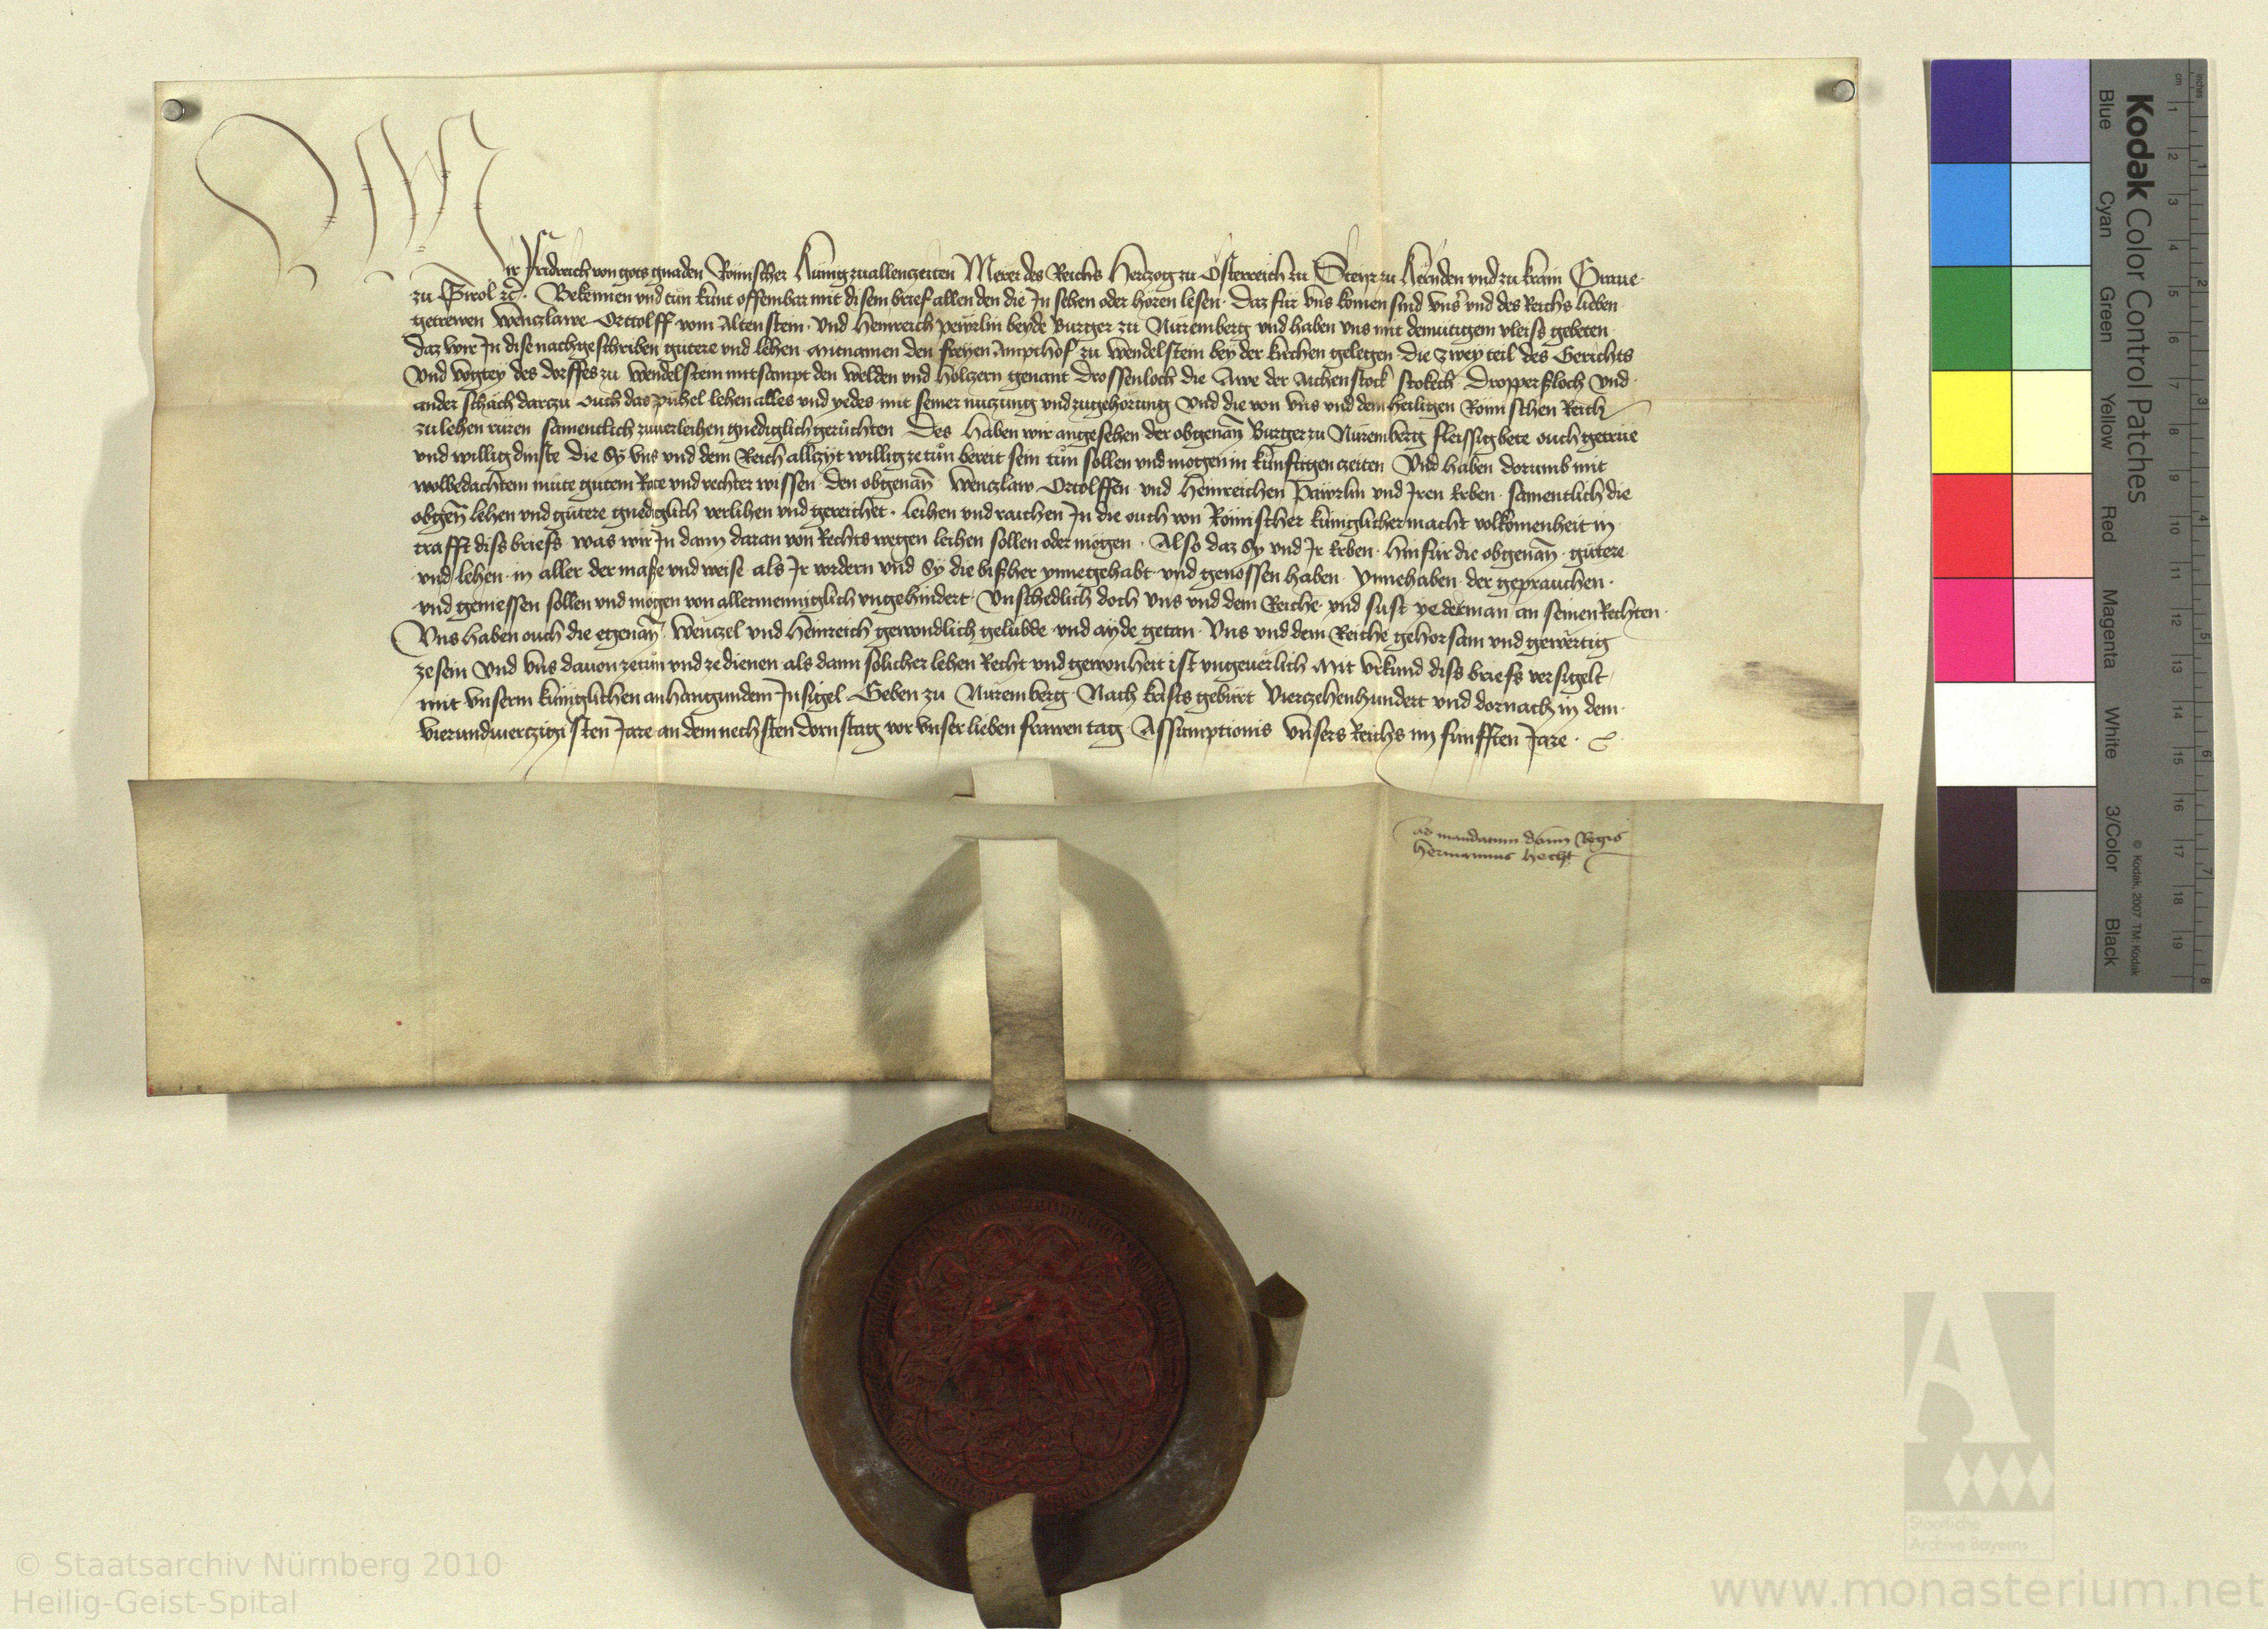 Wir Fridreich von gots gnaden Römischer Kúnig zuallenczeiten Merer des Reichs Herczog zu Österreich zu Steir zu Kernden und zu Krain Graue
zu Tirol etc̃. Bekennen und tun kunt offembar mit disem brief allen den die In sehen oder hören lesen. Daz für uns komen sind unsr̃ und des Reichs lieben
getrewen Wenczlawe Orttolff vom Altenstein und Heinreich Peyrlin beyde Burger zu Nüremberg und haben uns mit demütigem vleiss gebeten
daz wir In dise nachgeschriben gütere und lehen mitnamen den freyen Ampthof zu Wendelstein bey der kirchen gelegen die zwey teil des Gerichts
und vogtey des dorffes zu Wendelstein mitsampt den welden und hölczern genant Drossenloch die Awe der Aichenstock stokech Dropperßloch und
ander schach darczu ouch das pühel lehen alles und yedes mit seiner nuczung und zugehörung und die von uns und dem heiligen Römischen Reich
zu lehen rüren samentlich zuuerleihen gnediglich gerüchten Des haben wir angesehen der obgenañ Burger zu Nüremberg fleissig bete ouch getrüe
und willig dinste die Sy uns und dem Reich allczyt willig zetůn bereit sein tůn sollen und mögen in künftigen czeiten Und haben dorumb mit
wolbedachtem müte gutem Rate und rechter wissen den obgenañ Wenczlaw Ortolffen und Heinreichen Päwrlin und Iren Erben samentlich die
obgeñ lehen und gütere gnediglich verlihen und gereichet. leihen und raichen In die ouch von Römischer küniglicher macht volkomenheit in
crafft diss briefs was wir In dann daran von Rechts wegen leihen sollen oder mögen. Also daz Sy und Ir Erben hinfür die obgenañ gütere
und lehen in aller der maße und weise als Ir vordern und Sy die bißher ynnegehabt und genossen haben ynnehaben der geprauchen
und geniessen sollen und mögen von allermenniglich ungehindert. Unschedlich doch uns und dem Reiche und sust yederman an seinen Rechten
Uns haben ouch die egenañ Wenczel und Heinreich gewondlich gelübde und ayde getan Uns und dem Reiche gehorsam und gewertig
ze sein und uns dauon zetun und ze dienen als dann sölicher lehen Recht und gewonheit ist ungeuerlich Mit Urkund diss briefs versigelt
mit unserm küniglichen anhangundem Insigel Geben zu Nüremberg Nach Krists gebürt Vierczehenhundert und dornach in dem
Vierundvierczigisten Jare an dem nechsten dornstag vor unser lieben frawen tag Assumptionis Unsers Reichs im fünfften Jare.
Ad mandatum domĩ Regis
Hermannus Hecht
Kodak Color Control Patches
Blue Cyan Green Yellow Red Magenta White 3/Color Black
© Kodak, 2007 TM: Kodak
cm 1 2 3 4 5 6 7 8 9 10 11 12 13 14 15 16 17 18 19
inches 1 2 3 4 5 6 7 8
Staatliche
Archive Bayerns
© Staatsarchiv Nürnberg 2010
Heilig-Geist-Spital
www.monasterium.net